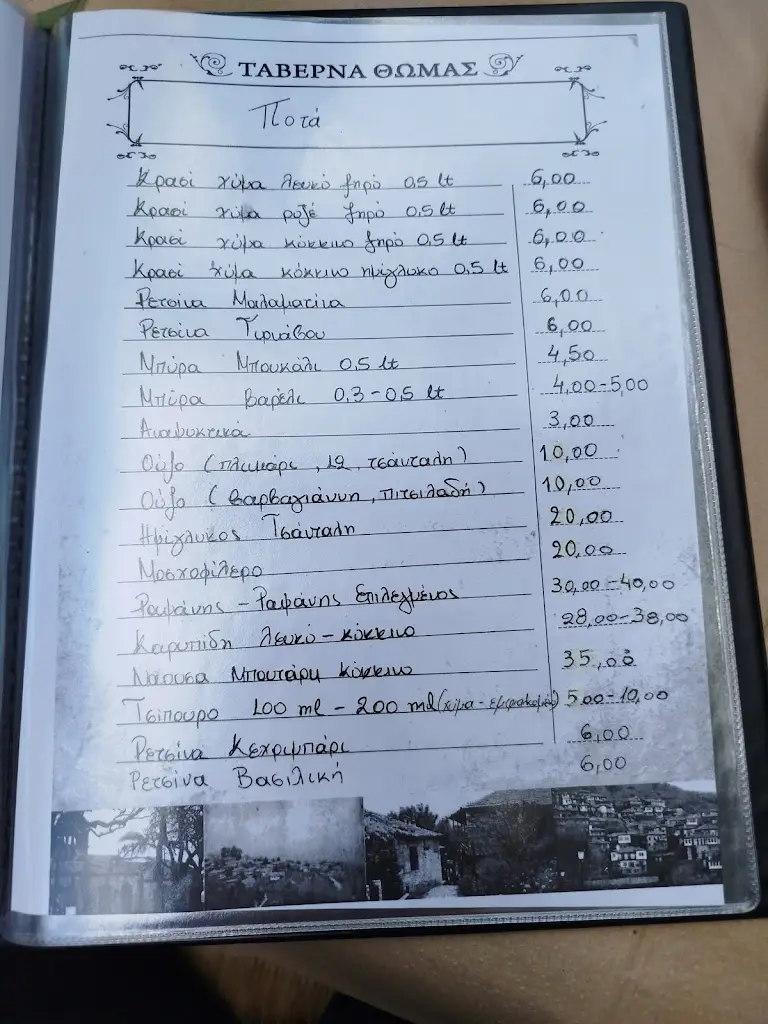 ΤΑΒΕΡΝΑ ΘΩΜΑΣ
Ποτά
Κρασί χύμα λευκό ξηρό 0,5 lt 6,00
Κρασί χύμα ροζέ ξηρό 0,5 lt 6,00
Κρασί χύμα κόκκινο ξηρό 0,5 lt 6,00
Κρασί χύμα κόκκινο ημίγλυκο 0,5 lt 6,00
Ρετσίνα Μαλαματίνα 6,00
Ρετσίνα Τυρνάβου 6,00
Μπύρα Μπουκάλι 0,5 lt 4,50
Μπύρα Βαρέλι 0,3-0,5 lt 4,00-5,00
Αναψυκτικά 3,00
Ούζο (πλωμάρι, 12, τσάνταλη) 10,00
Ούζο (Βαρβαγιάννη, πιτσιλαδή) 10,00
Ημίγλυκος Τσάνταλη 20,00
Μοσχοφίλερο 20,00
Ραψάνης - Ραψάνης Επιλεγμένος 30,00-40,00
Καρυπίδη λευκό-κόκκινο 28,00-38,00
Νάουσα Μπουτάρη κόκκινο 35,00
Τσίπουρο 100 ml - 200 ml (χύμα - εμφιαλωμένο) 5,00-10,00
Ρετσίνα Κεχριμπάρι 6,00
Ρετσίνα Βασιλική 6,00